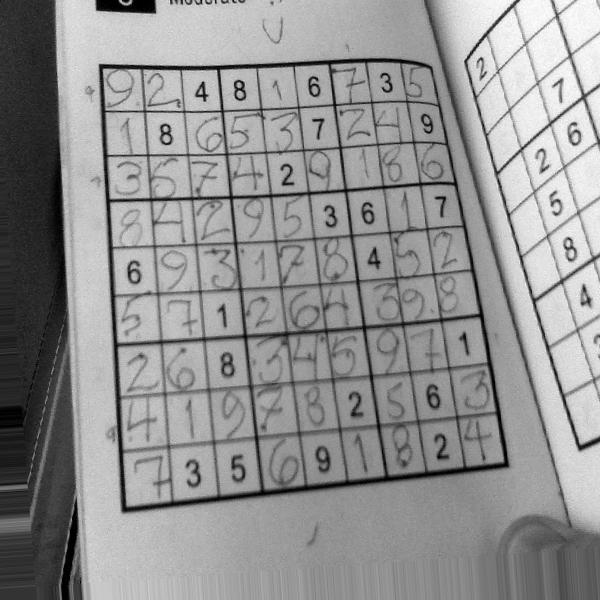 Moderate
9 2 4 8 1 6 7 3 5
1 8 6 5 3 7 2 4 9
3 5 7 4 2 9 1 8 6
8 4 2 9 5 3 6 1 7
6 9 3 1 7 8 4 5 2
5 7 1 2 6 4 3 9 8
2 6 8 3 4 5 9 7 1
4 1 9 7 8 2 5 6 3
7 3 5 6 9 1 8 2 4
2
7
2 6
5
8
4